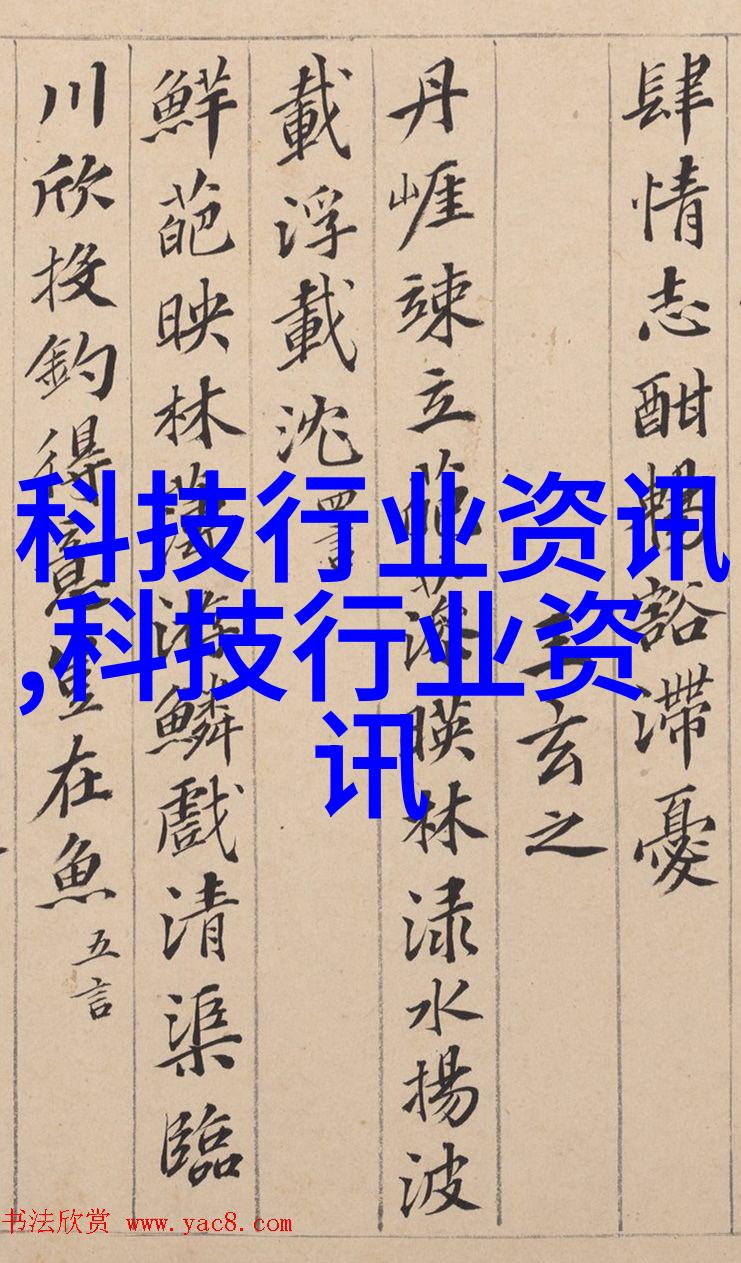 肆情志酣暢豁滯憂
王玄之
丹崕竦立葩藻暎林渌水揚波
載浮載沈 四言
鮮葩映林薄游鱗戲清渠臨
川欣投釣得意豈在魚 五言
科技行业资讯
,科技行业资
讯
书法欣赏 www.yac8.com